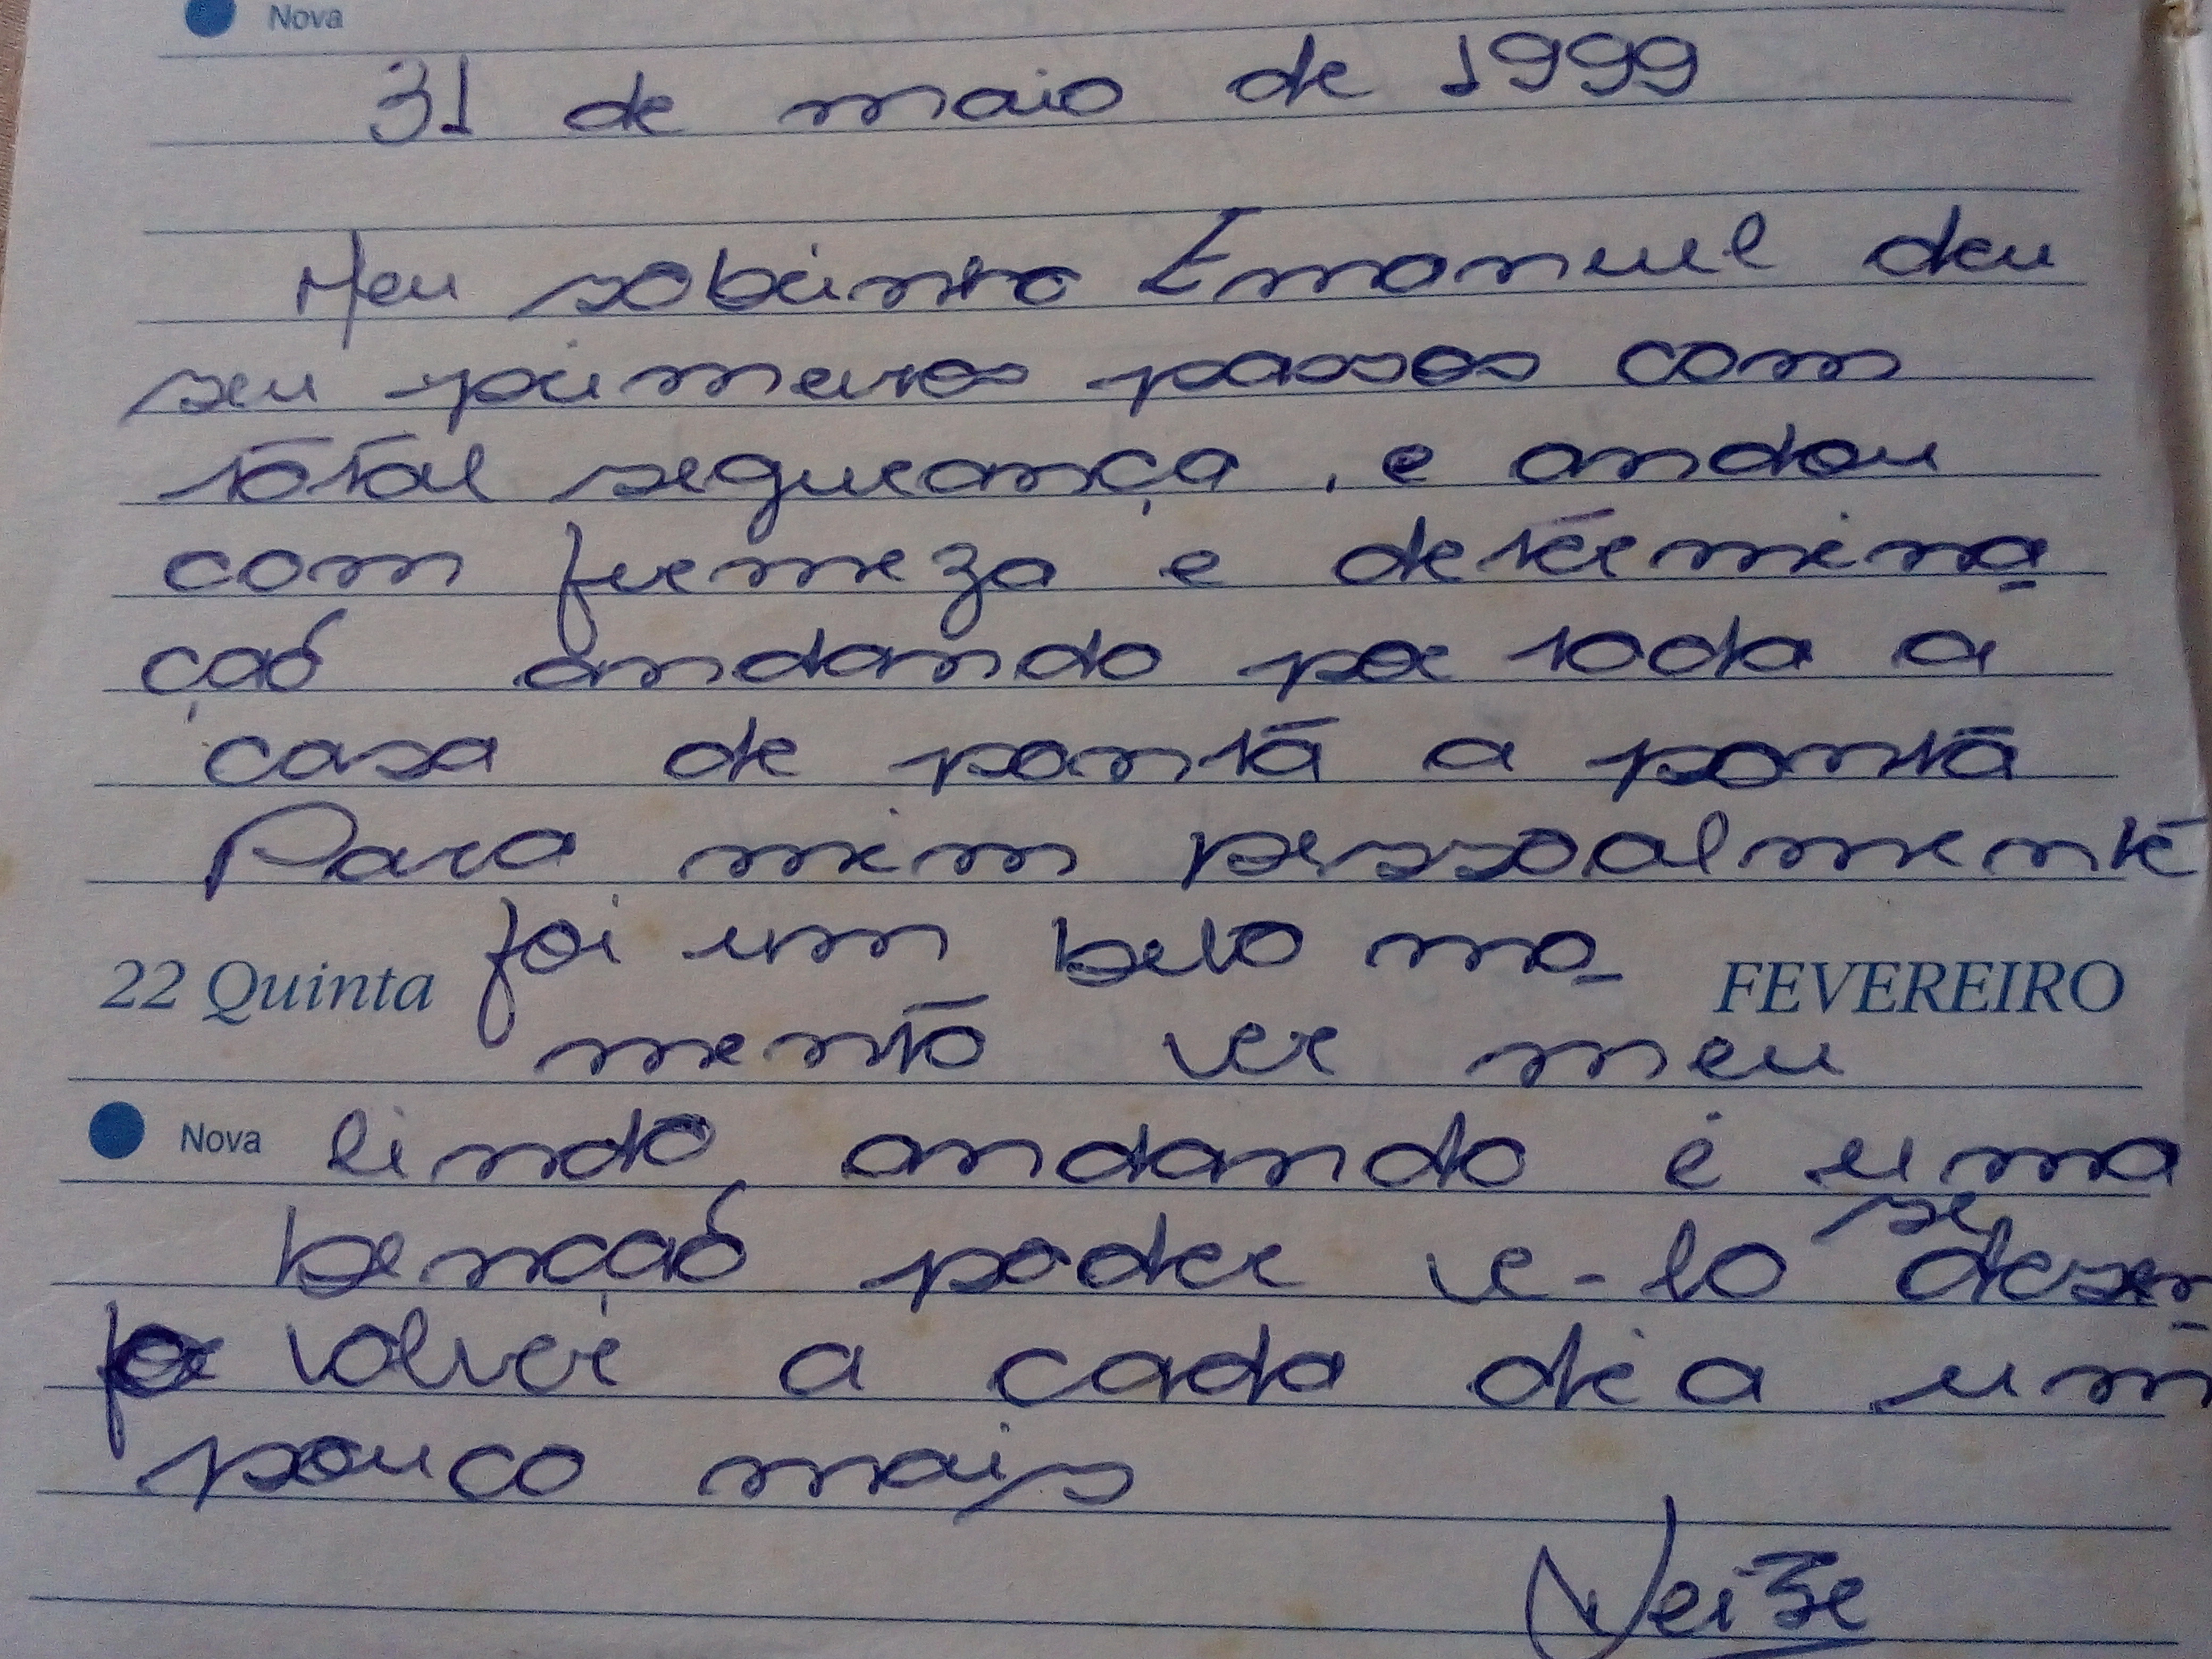 Nova
31 de maio de 1999
Meu sobrinho Emanuel deu
seu primeiros passos com
total segurança, e andou
com firmeza e determina-
çaó andando por toda a
casa de ponta a ponta
Para mim pessoalmente
foi um belo mo-
22 Quinta FEVEREIRO
mento ver meu
Nova lindo andando é uma
bençaó poder ve-lo se desen-
volver a cada dia um
pouco mais
Neize